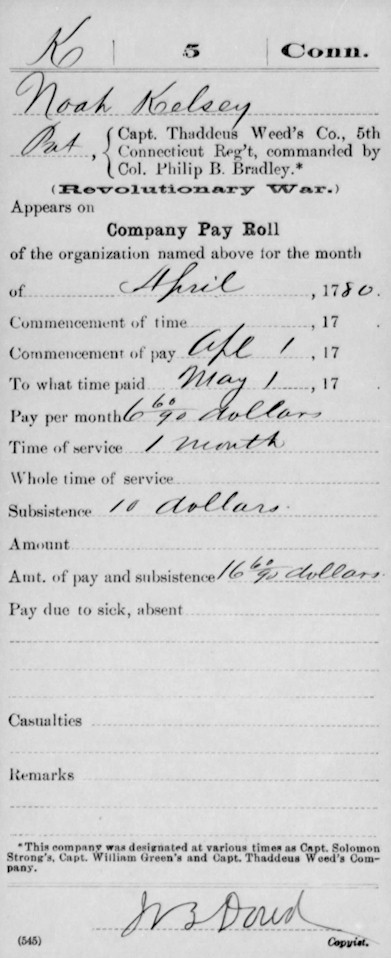 K | 5 | Conn.
Noah Kelsey
Pvt, { Capt. Thaddeus Weed's Co., 5th
Connecticut Reg't, commanded by
Col. Philip B. Bradley.*
(Revolutionary War.)
Appears on
Company Pay Roll
of the organization named above for the month
of April, 1780.
Commencement of time, 17
Commencement of pay Apl 1, 17
To what time paid May 1, 17
Pay per month 6 60/90 dollars
Time of service 1 month
Whole time of service
Subsistence 10 dollars.
Amount
Amt. of pay and subsistence 16 60/90 dollars.
Pay due to sick, absent
Casualties
Remarks
*This company was designated at various times as Capt. Solomon
Strong's, Capt. William Green's and Capt. Thaddeus Weed's Com-
pany.
Dowd
(545) Copyist.